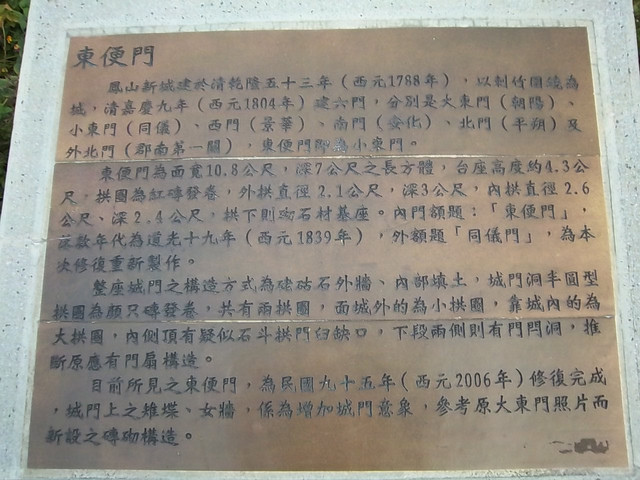 東便門
鳳山新城建於清乾隆五十三年（西元1788年），以刺竹圍繞為
城，清嘉慶九年（西元1804年）建六門，分別是大東門（朝陽）、
小東門（同儀）、西門（景華）、南門（安化）、北門（平朔）及
外北門（郡南第一關），東便門即為小東門。
東便門為面寬10.8公尺，深7公尺之長方體，台座高度約4.3公
尺，拱圈為紅磚發卷，外拱直徑2.1公尺，深3公尺，內拱直徑2.6
公尺、深2.4公尺，拱下則砌石材基座。內門額題：「東便門」，
款年代為道光十九年（西元1839年），外額題「同儀門」，為本
次修復重新製作。
整座城門之構造方式為硓𥑮石外牆、內部填土，城門洞半圓型
拱圈為顏只磚發卷，共有兩拱圈，面城外的為小拱圈，靠城內的為
大拱圈，內側頂有疑似石斗拱門臼缺口，下段兩側則有門閂洞，推
斷原應有門扇構造。
目前所見之東便門，為民國九十五年（西元2006年）修復完成
，城門上之雉堞、女牆，係為增加城門意象，參考原大東門照片而
新設之磚砌構造。